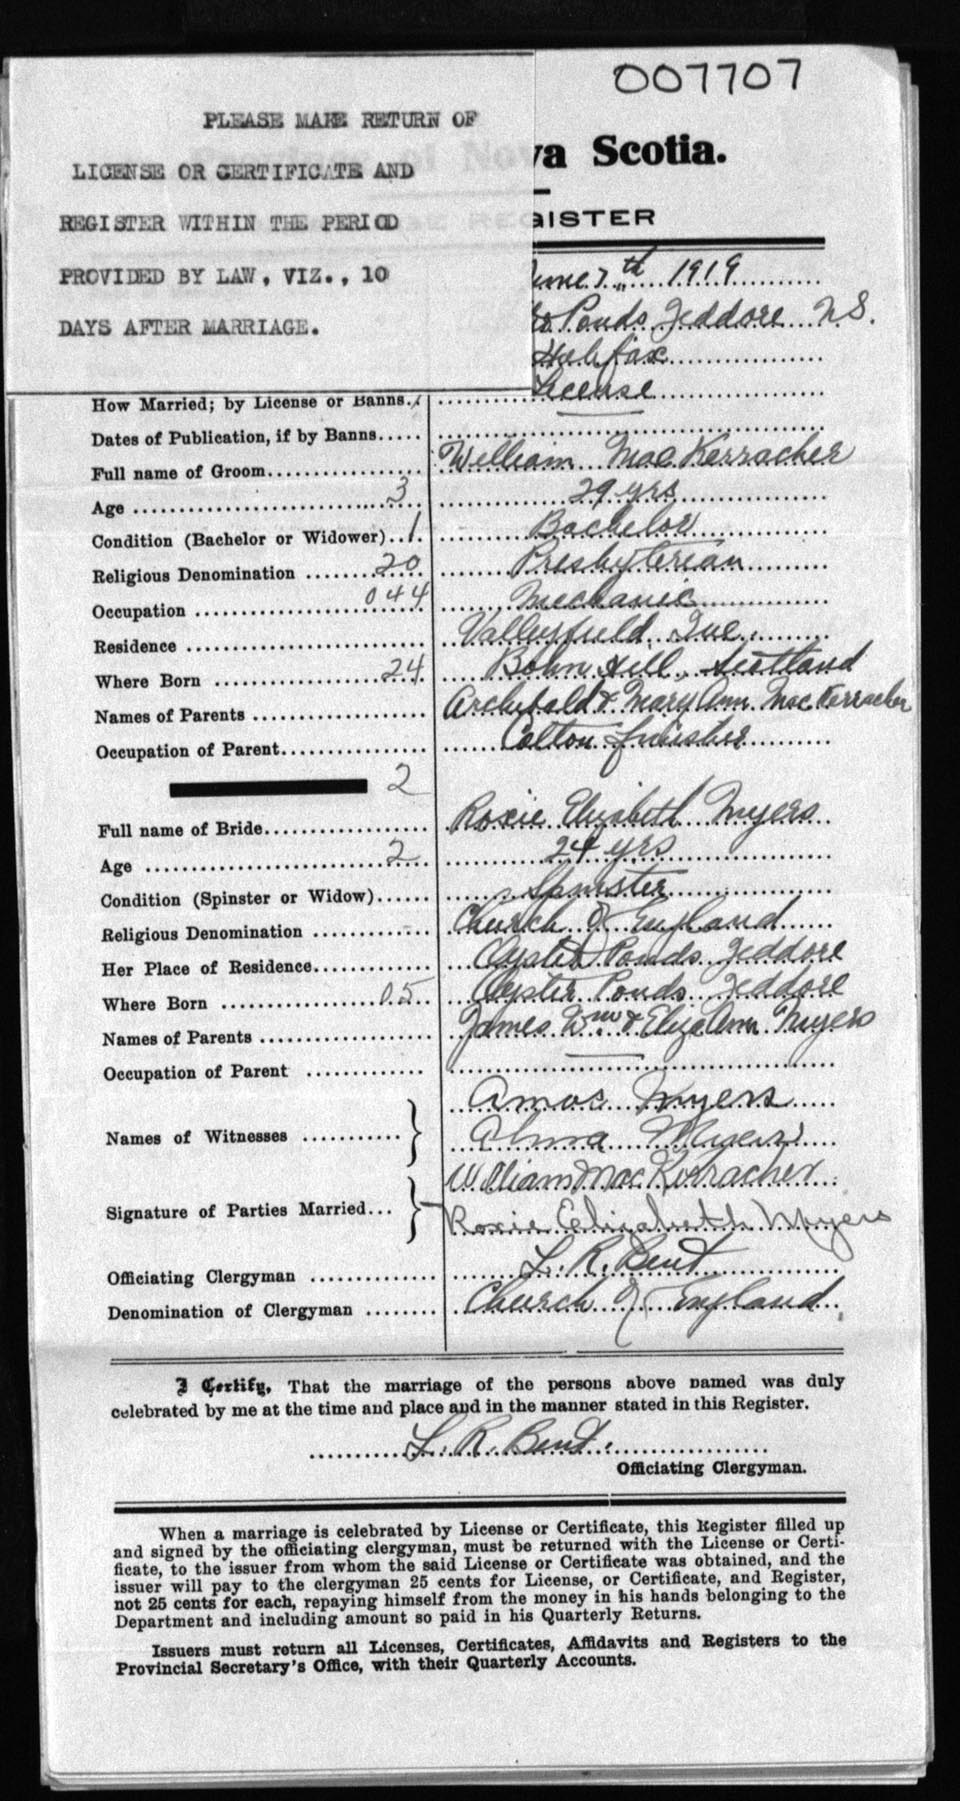 007707
PLEASE MAKE RETURN OF
LICENSE OR CERTIFICATE AND
REGISTER WITHIN THE PERIOD
PROVIDED BY LAW, VIZ., 10
DAYS AFTER MARRIAGE.
va Scotia.
GISTER
June 7th 1919
Ponds Jeddore N.S.
Halifax
License
How Married; by License or Banns.
Dates of Publication, if by Banns.....
Full name of Groom.................. William MacKerracher
Age ........................ 3 29 yrs
Condition (Bachelor or Widower).. 1. Bachelor
Religious Denomination ....... 20 Presbyterian
Occupation ................. 044 Mechanic
Residence ........................ Valleyfield, Que.
Where Born ................ 24 Bohn Hill, Scotland
Names of Parents .................. Archibald & Mary Ann MacKerracher
Occupation of Parent............... Cotton finisher
2
Full name of Bride.................. Roxie Elizabeth Myers
Age ........................ 2 24 yrs
Condition (Spinster or Widow)...... Spinster
Religious Denomination ............. Church of England
Her Place of Residence............. Oyster Ponds Jeddore
Where Born ................ 05 Oyster Ponds Jeddore
Names of Parents .................. James Wm & Eliza Ann Myers
Occupation of Parent .............
Amos Myers
Names of Witnesses ........... } Alma Myers
William MacKerracher
Signature of Parties Married... } Roxie Elizabeth Myers
Officiating Clergyman .............. L. R. Bent
Denomination of Clergyman ......... Church of England
I Certify, That the marriage of the persons above named was duly
celebrated by me at the time and place and in the manner stated in this Register.
L. R. Bent.
Officiating Clergyman.
When a marriage is celebrated by License or Certificate, this Register filled up
and signed by the officiating clergyman, must be returned with the License or Certi-
ficate, to the issuer from whom the said License or Certificate was obtained, and the
issuer will pay to the clergyman 25 cents for License, or Certificate, and Register,
not 25 cents for each, repaying himself from the money in his hands belonging to the
Department and including amount so paid in his Quarterly Returns.
Issuers must return all Licenses, Certificates, Affidavits and Registers to the
Provincial Secretary's Office, with their Quarterly Accounts.